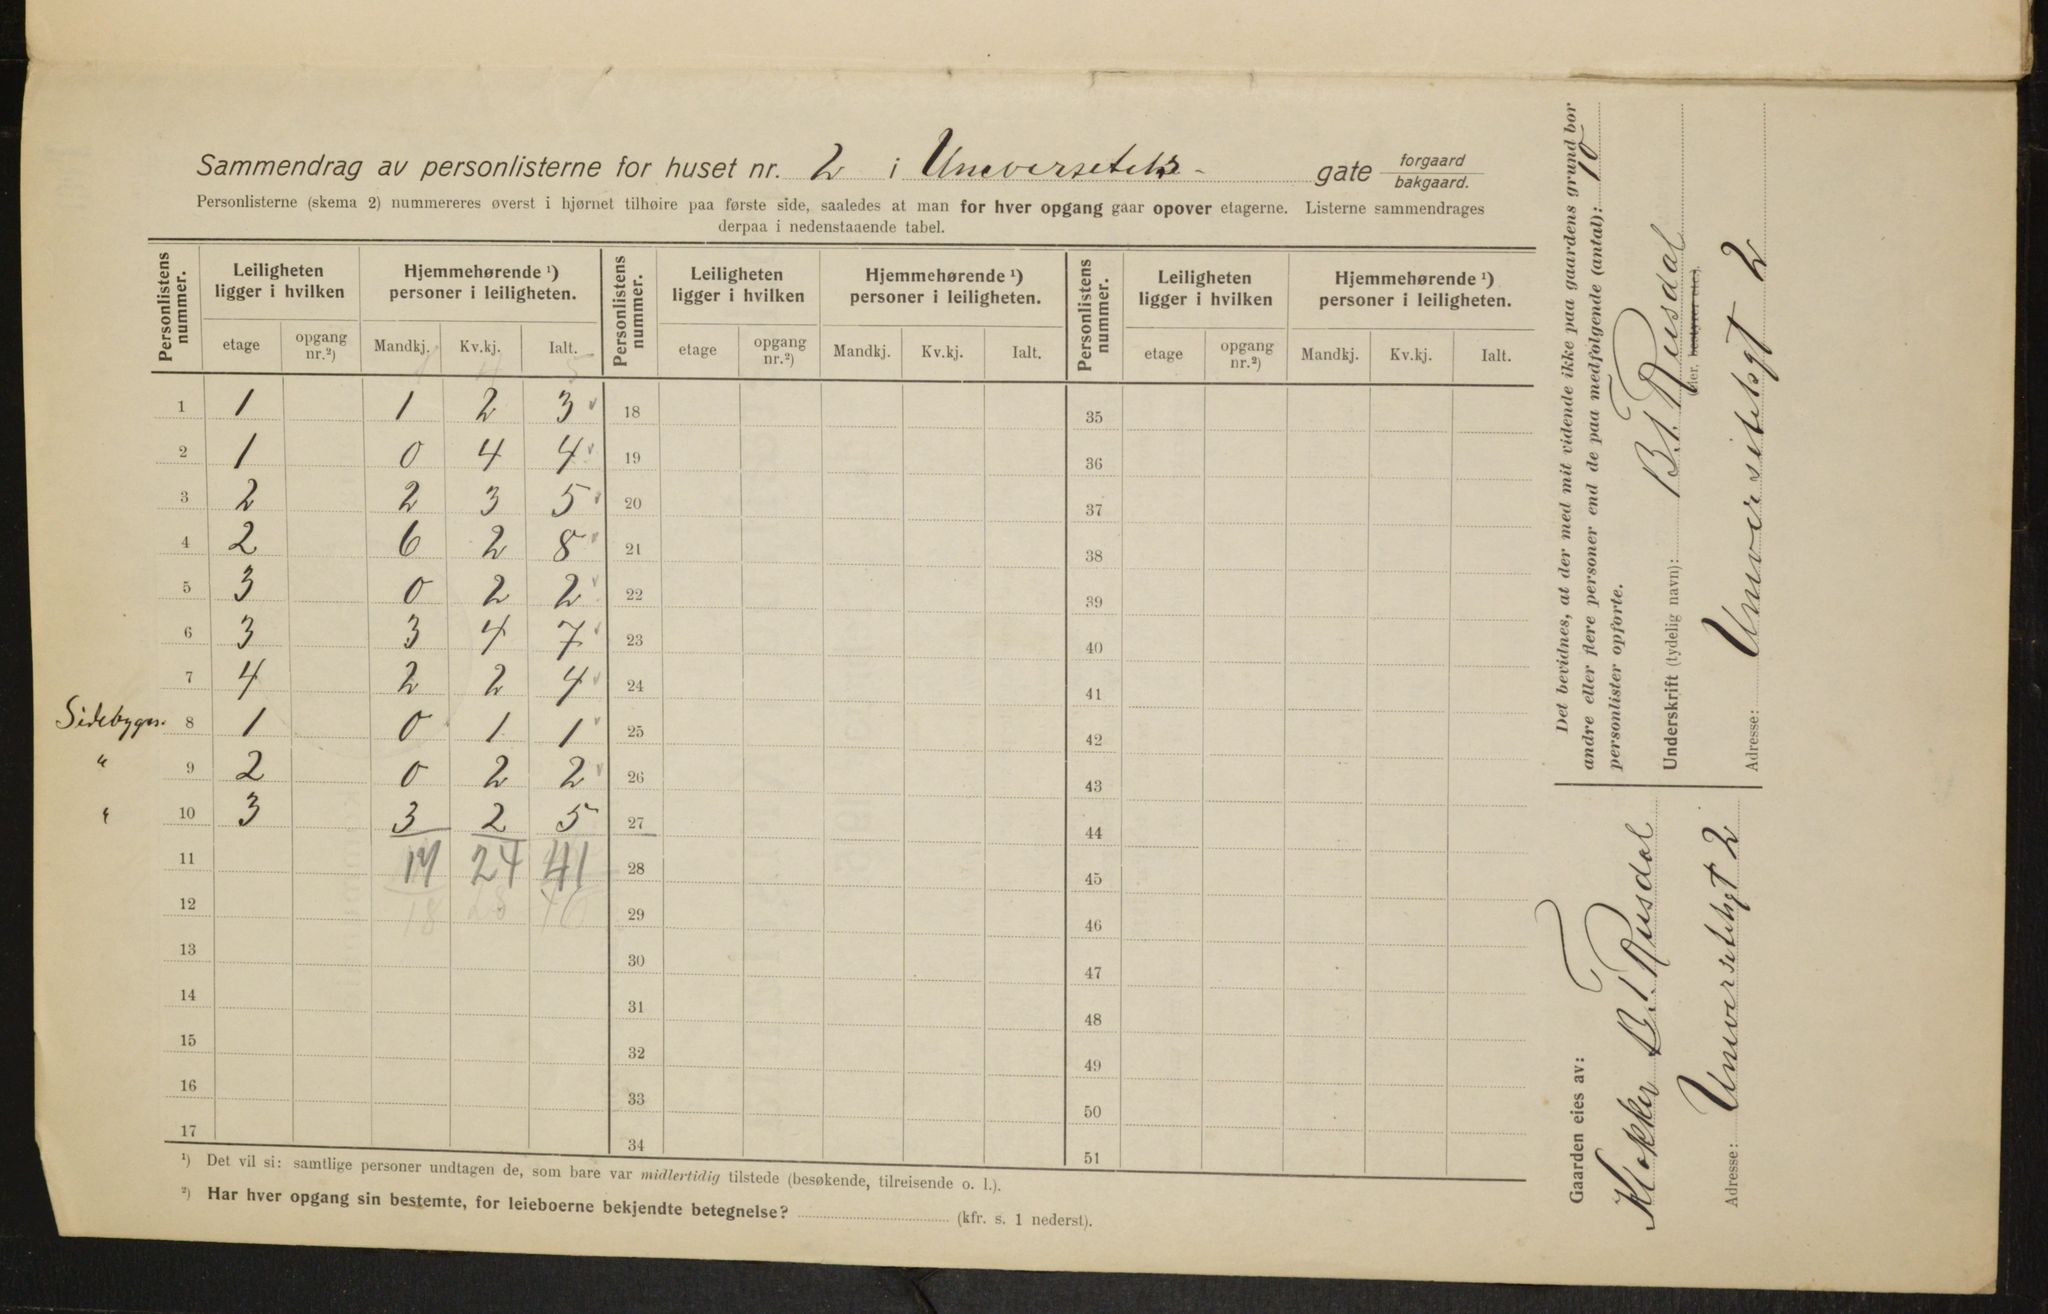 Sammendrag av personlisterne for huset nr. 2 i Universitets- gate forgaard bakgaard.
Personlisterne (skema 2) nummereres øverst i hjørnet tilhøire paa første side, saaledes at man for hver opgang gaar opover etagerne. Listerne sammendrages
derpaa i nedenstaaende tabel.
Personlistens nummer. Leiligheten ligger i hvilken Hjemmehørende ¹) personer i leiligheten. Personlistens nummer. Leiligheten ligger i hvilken Hjemmehørende ¹) personer i leiligheten. Personlistens nummer. Leiligheten ligger i hvilken Hjemmehørende ¹) personer i leiligheten.
etage opgang nr.²) Mandkj. Kv.kj. Ialt. etage opgang nr.²) Mandkj. Kv.kj. Ialt. etage opgang nr.²) Mandkj. Kv.kj. Ialt.
1 1 1 2 3 18 35
2 1 0 4 4 19 36
3 2 2 3 5 20 37
4 2 6 2 8 21 38
5 3 0 2 2 22 39
6 3 3 4 7 23 40
7 4 2 2 4 24 41
Sidebygn. 8 1 0 1 1 25 42
" 9 2 0 2 2 26 43
" 10 3 3 2 5 27 44
11 17 24 41 28 45
12 18 28 46 29 46
13 30 47
14 31 48
15 32 49
16 33 50
17 34 51
¹) Det vil si: samtlige personer undtagen de, som bare var midlertidig tilstede (besøkende, tilreisende o. l.).
²) Har hver opgang sin bestemte, for leieboerne bekjendte betegnelse? (kfr. s. 1 nederst).
Det bevidnes, at der med mit vidende ikke paa gaardens grund bor
andre eller flere personer end de paa medfølgende (antal): 10
personlister opførte.
Underskrift (tydelig navn): B. T. Rusdal
eier. bestyrer etc.).
Adresse: Universitetsgt 2
Gaarden eies av:
Klokker B. T. Rusdal
Adresse: Universitetsgt 2